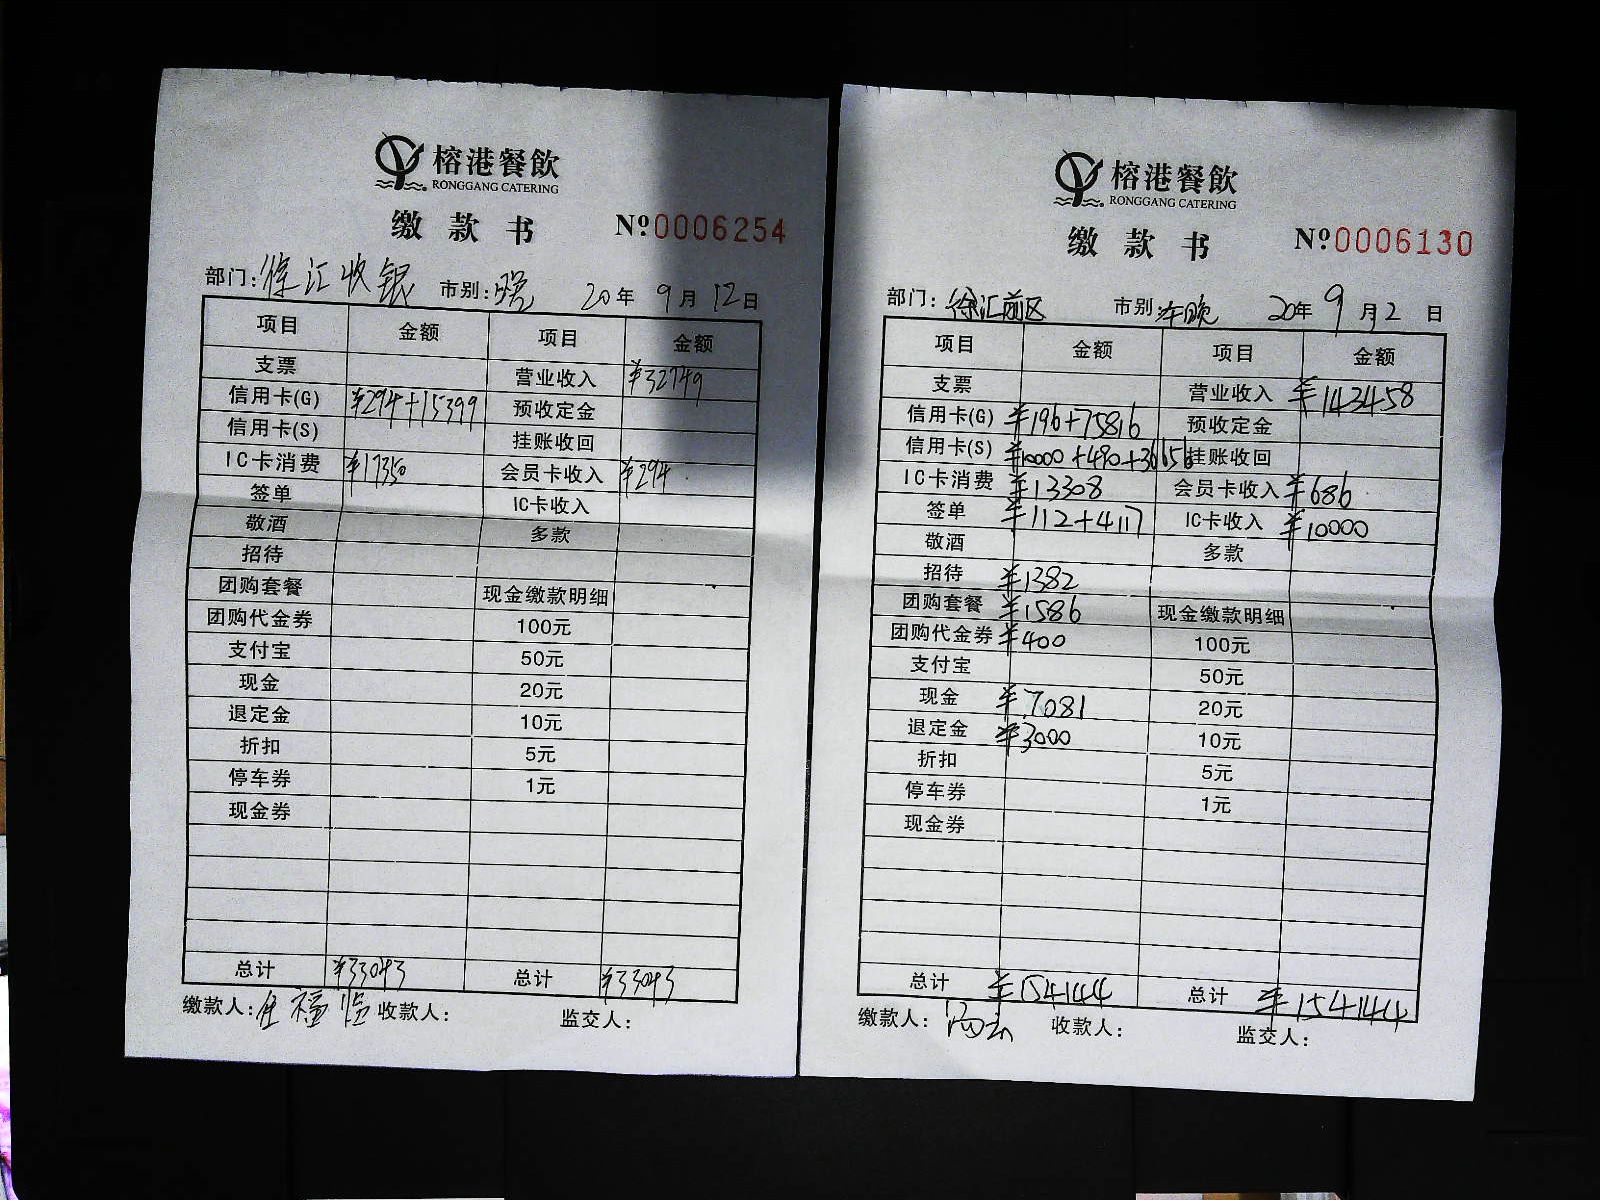 榕港餐飲
RONGGANG CATERING
缴款书 №0006254
部门：徐汇收银 市别：晚 20年9月12日
项目 金额 项目 金额
支票 营业收入 ¥32749
信用卡(G) ¥294+15399 预收定金
信用卡(S) 挂账收回
IC卡消费 ¥17350 会员卡收入 ¥294
签单 IC卡收入
敬酒 多款
招待
团购套餐 现金缴款明细
团购代金券 100元
支付宝 50元
现金 20元
退定金 10元
折扣 5元
停车券 1元
现金券
总计 ¥33043 总计 ¥33043
缴款人： 收款人： 监交人：
榕港餐飲
RONGGANG CATERING
缴款书 №0006130
部门：徐汇前区 市别：午晚 20年9月2日
项目 金额 项目 金额
支票 营业收入 ¥143458
信用卡(G) ¥196+75816 预收定金
信用卡(S) ¥10000+490+36656 挂账收回
IC卡消费 ¥13308 会员卡收入 ¥686
签单 ¥112+4117 IC卡收入 ¥10000
敬酒 多款
招待 ¥1382
团购套餐 ¥1586 现金缴款明细
团购代金券 ¥400 100元
支付宝 50元
现金 ¥7081 20元
退定金 ¥3000 10元
折扣 5元
停车券 1元
现金券
总计 ¥154144 总计 ¥154144
缴款人： 收款人： 监交人：